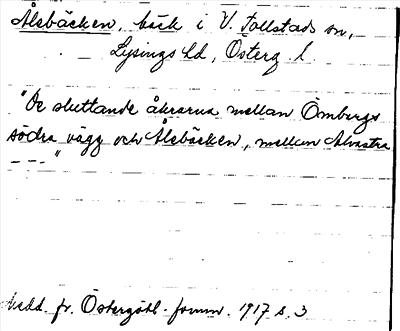 Ålebäcken, bäck i V. Tollstads sn,
Lysings hd, Österg. l.
"De sluttande åkrarna mellan Ombergs
södra vägg och Ålebäcken, mellan Alvastra
---"
Medd. fr. Östergötl. fornm. 1917 s. 3